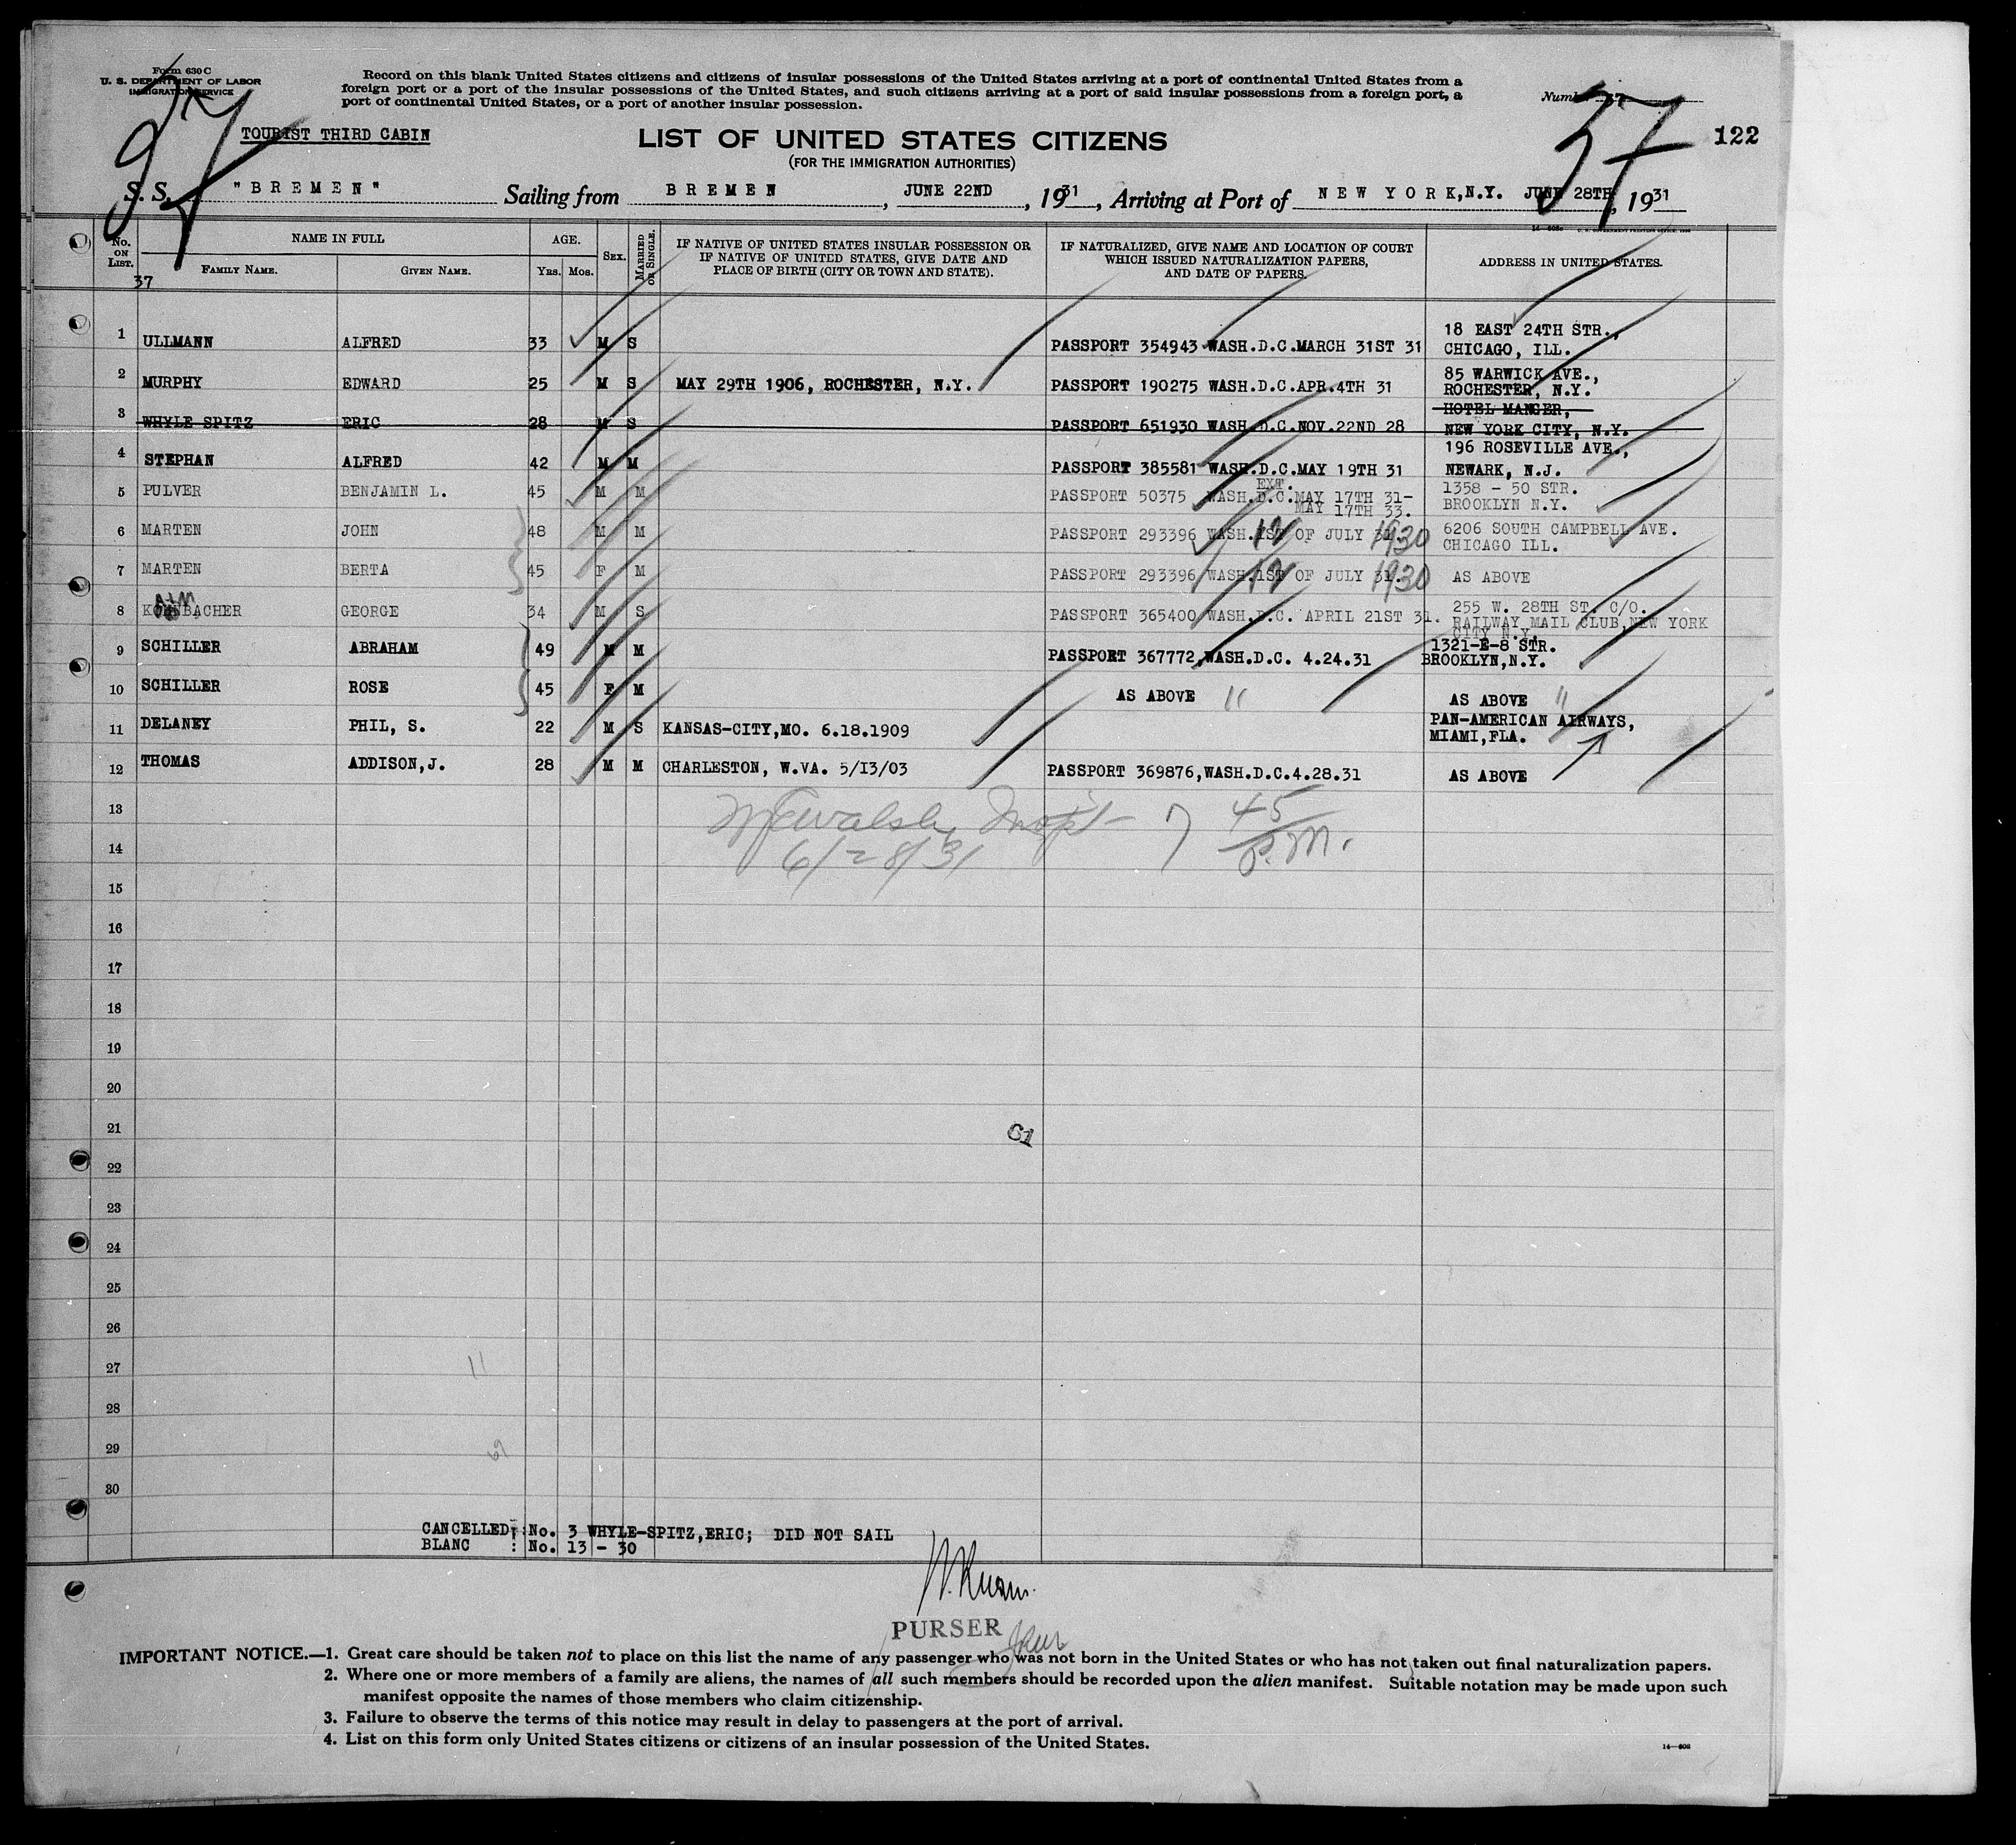 Form 630 C
U. S. DEPARTMENT OF LABOR
IMMIGRATION SERVICE
Record on this blank United States citizens and citizens of insular possessions of the United States arriving at a port of continental United States from a
foreign port or a port of the insular possessions of the United States, and such citizens arriving at a port of said insular possessions from a foreign port, a
port of continental United States, or a port of another insular possession.
Number 37
37
37
122
TOURIST THIRD CABIN
LIST OF UNITED STATES CITIZENS
(FOR THE IMMIGRATION AUTHORITIES)
S. S. "BREMEN" Sailing from BREMEN, JUNE 22ND, 1931, Arriving at Port of NEW YORK, N.Y. JUNE 28TH, 1931
No. ON LIST. NAME IN FULL FAMILY NAME. GIVEN NAME. AGE. YRS. MOS. SEX. MARRIED OR SINGLE. IF NATIVE OF UNITED STATES INSULAR POSSESSION OR IF NATIVE OF UNITED STATES, GIVE DATE AND PLACE OF BIRTH (CITY OR TOWN AND STATE). IF NATURALIZED, GIVE NAME AND LOCATION OF COURT WHICH ISSUED NATURALIZATION PAPERS, AND DATE OF PAPERS. ADDRESS IN UNITED STATES.
37
1 ULLMANN ALFRED 33 M S PASSPORT 354943 WASH.D.C.MARCH 31ST 31 18 EAST 24TH STR., CHICAGO, ILL.
2 MURPHY EDWARD 25 M S MAY 29TH 1906, ROCHESTER, N.Y. PASSPORT 190275 WASH.D.C.APR.4TH 31 85 WARWICK AVE., ROCHESTER, N.Y.
3 WHYLE SPITZ ERIC 28 M S PASSPORT 651930 WASH.D.C.NOV.22ND 28 HOTEL MANGER, NEW YORK CITY, N.Y.
4 STEPHAN ALFRED 42 M M PASSPORT 385581 WASH.D.C.MAY 19TH 31 196 ROSEVILLE AVE., NEWARK, N.J.
5 PULVER BENJAMIN L. 45 M M PASSPORT 50375 WASH.D.C.MAY 17TH 31- EXT. MAY 17TH 33. 1358 - 50 STR. BROOKLYN N.Y.
6 MARTEN JOHN 48 M M PASSPORT 293396 WASH.1ST OF JULY 31. 1930 6206 SOUTH CAMPBELL AVE. CHICAGO ILL.
7 MARTEN BERTA 45 F M PASSPORT 293396 WASH.1ST OF JULY 31. 1930 AS ABOVE
8 GEORGE 34 M S PASSPORT 365400 WASH.D.C. APRIL 21ST 31. 255 W. 28TH ST. C/O. RAILWAY MAIL CLUB, NEW YORK CITY N.Y.
9 SCHILLER ABRAHAM 49 M M PASSPORT 367772, WASH.D.C. 4.24.31 1321-E-8 STR. BROOKLYN, N.Y.
10 SCHILLER ROSE 45 F M AS ABOVE " AS ABOVE "
11 DELANEY PHIL, S. 22 M S KANSAS-CITY, MO. 6.18.1909 PAN-AMERICAN AIRWAYS, MIAMI, FLA.
12 THOMAS ADDISON, J. 28 M M CHARLESTON, W.VA. 5/13/03 PASSPORT 369876, WASH.D.C.4.28.31 AS ABOVE
13 Walsh Inspt 7 45
14 6/28/31 P.M.
15
16
17
18
19
20
21
61
22
23
24
25
26
27 11
28
29
30
CANCELLED: No. 3 WHYLE-SPITZ, ERIC; DID NOT SAIL
BLANC : No. 13 - 30
PURSER
IMPORTANT NOTICE.—1. Great care should be taken not to place on this list the name of any passenger who was not born in the United States or who has not taken out final naturalization papers.
2. Where one or more members of a family are aliens, the names of all such members should be recorded upon the alien manifest. Suitable notation may be made upon such
manifest opposite the names of those members who claim citizenship.
3. Failure to observe the terms of this notice may result in delay to passengers at the port of arrival.
4. List on this form only United States citizens or citizens of an insular possession of the United States.